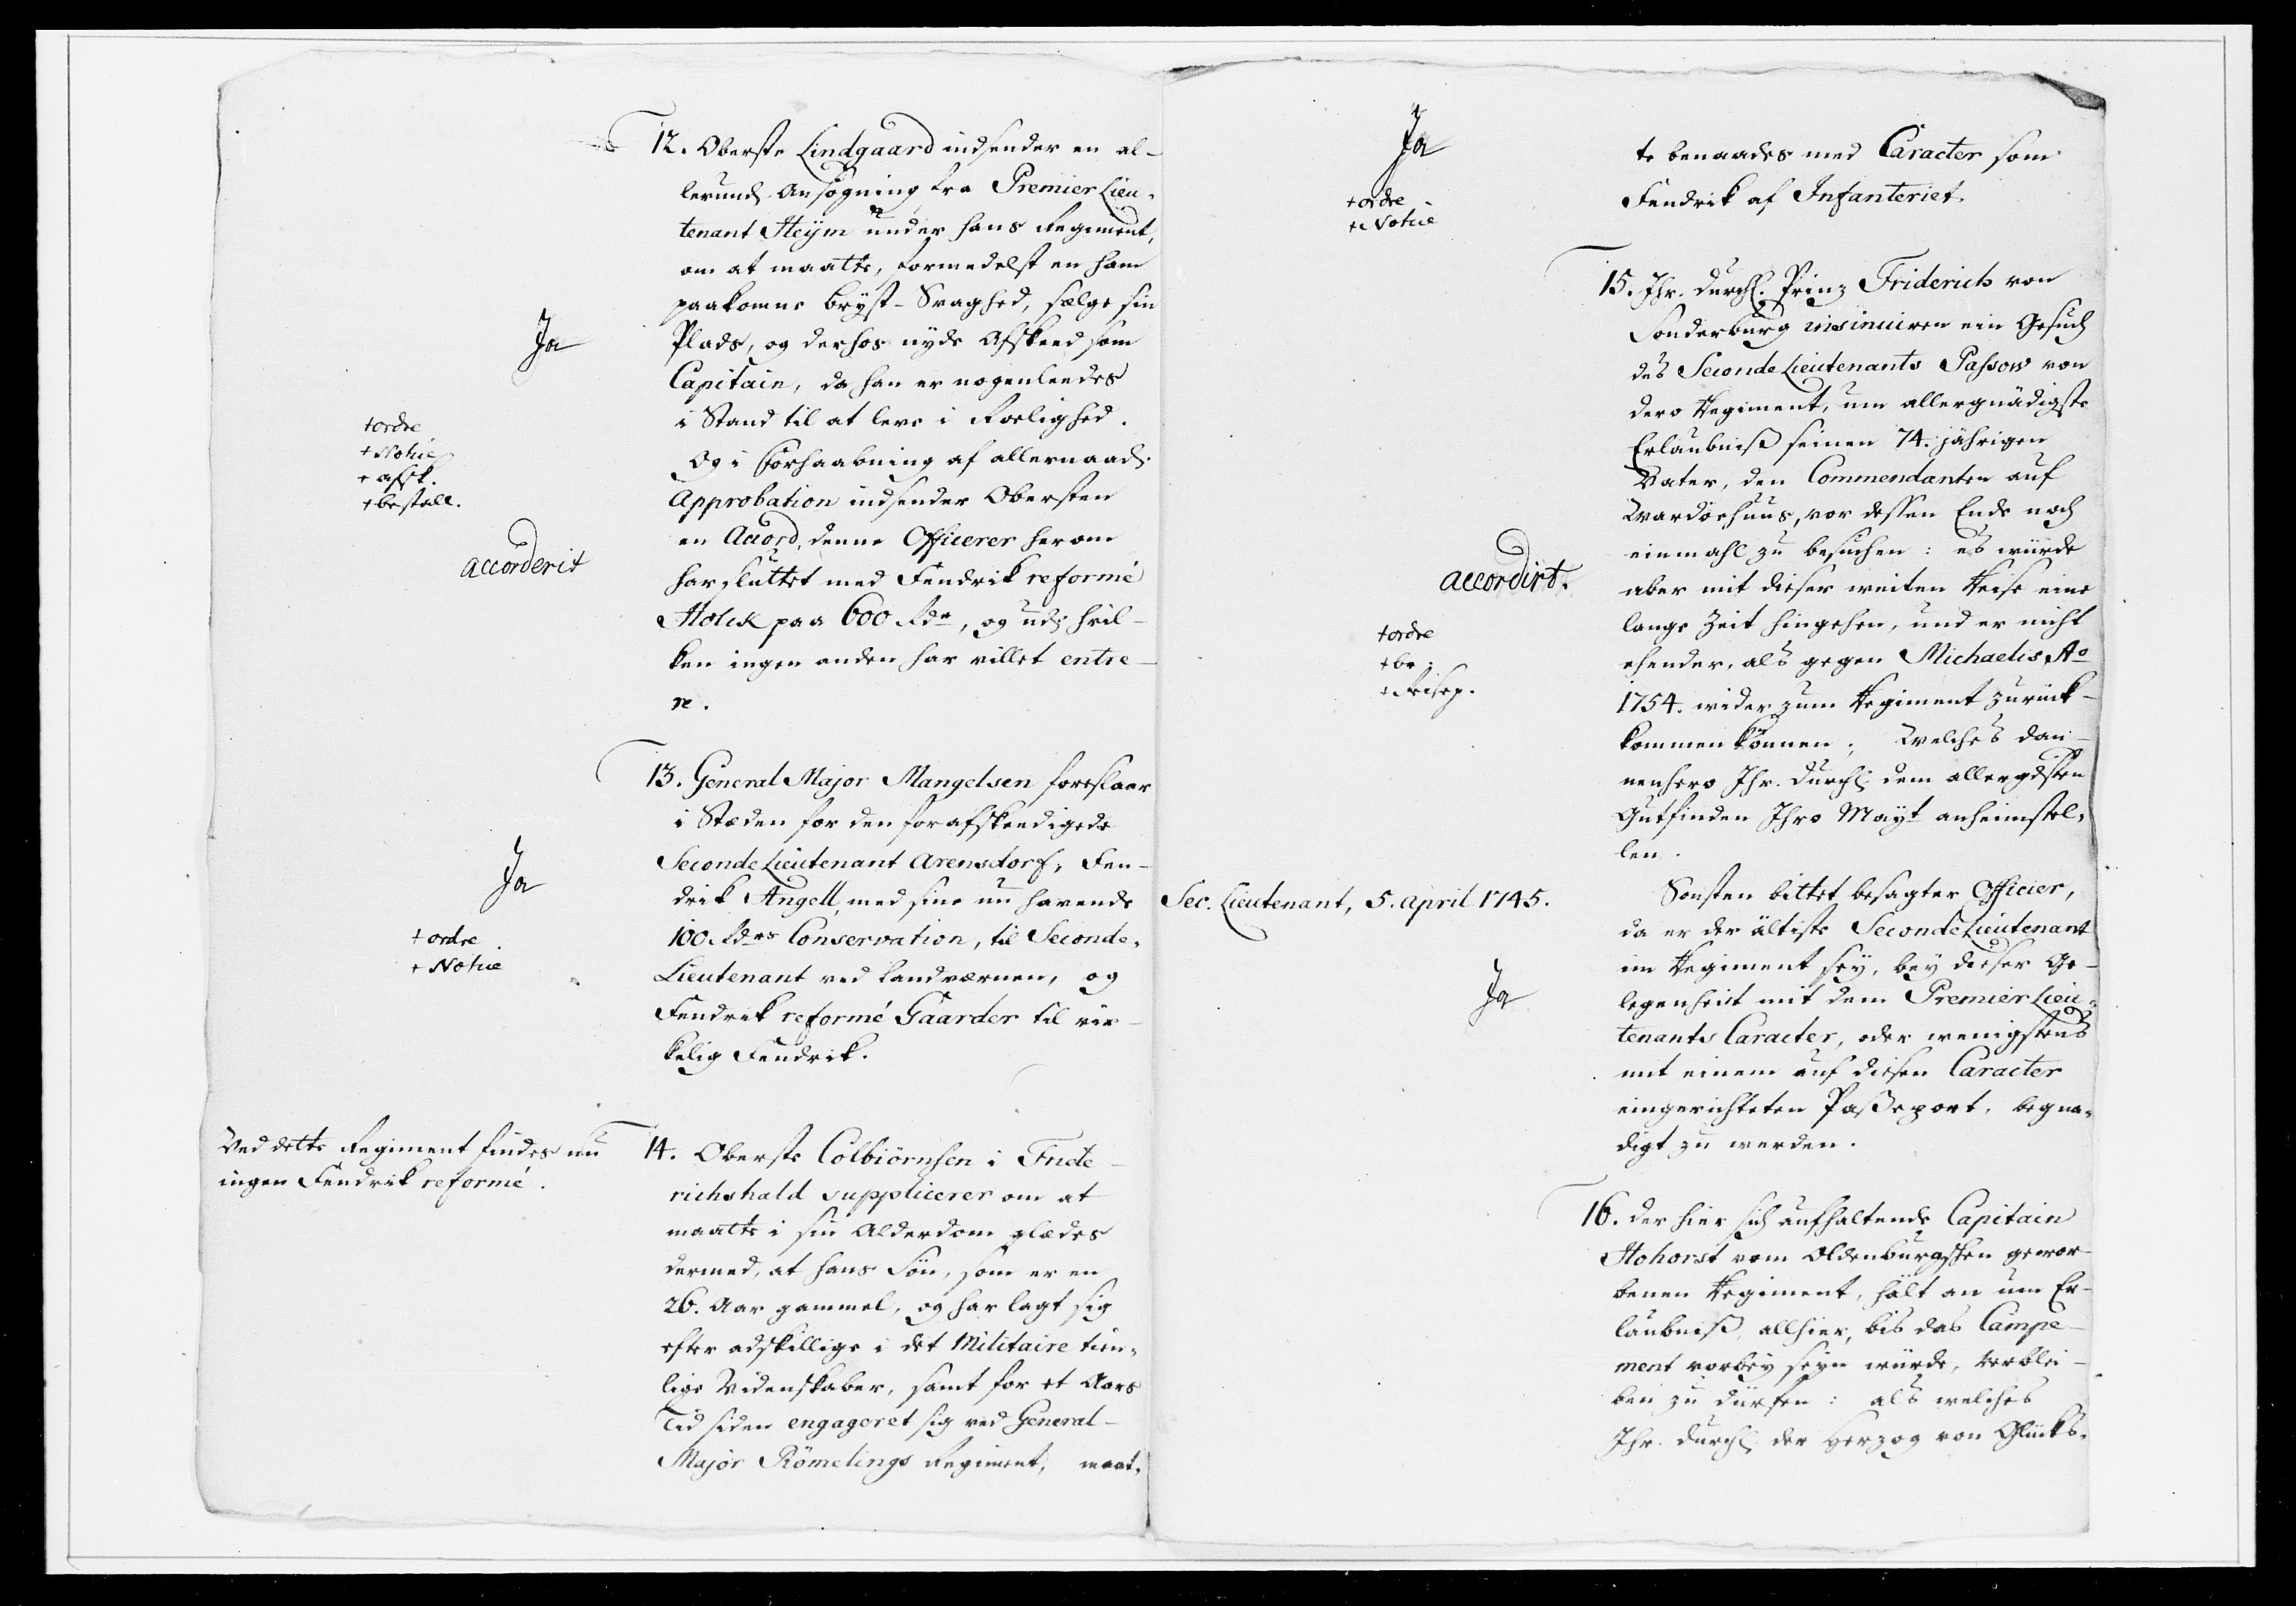 12. Oberste Lindgaard indsender en al-
lerund. Ansøgning fra Premier Lieu-
tenant Heÿm under hans Regiment,
om at maatte, formedelst en ham
paakomne bryst-Svaghed, sælge sin
Plads, og derhos nyde Afskeed som
Capitain, da han er nogenleedes
i Stand til at leve i Roelighed.
Og i Forhaabning af allernaad.
Approbation indsender Obersten
en Accord, denne Officerer herom
har sluttet med Fendrik reformé
Holck paa 600 Rdr, og ud. hvil-
ken ingen anden har villet entre-
re.
Ja
+ordre
+Notice
+afsk.
+bestall.
accorderit
13. General Major Mangelsen foreslaar
i Stæden for den forafskeedigede
Seconde Lieutenant Arensdorf, Fen-
drik Angell, med sine nu havende
100 Rdrs Conservation, til Seconde-
Lieutenant ved Landværnen, og
Fendrik reformé Gaarder til vir-
kelig Fendrik.
Ja
+ordre
+Notice
Ved dette Regiment findes nu
ingen Fendrik reformé.
14. Oberste Colbiörnsen i Fride-
richshald supplicerer om at
maatte i sin Alderdom glædes
dermed, at hans Søn, som er en
26. Aar gammel, og har lagt sig
efter adskillige i det Militaire tien-
lige Videnskaber, samt for et Aars
Tid siden engageret sig ved General-
Major Römelings Regiment, maat-
Ja
+ordre
+Notice
te benaades med Caracter som
Fendrik af Infanteriet.
15. Ihr. Durchl. Prinz Friderich von
Sonderburg insinuiren ein Gesuch
des Seconde Lieutenants Passow von
dero Regiment, um allergnädigste
Erlaubniß seinen 74. jährigen
Vater, den Commendanten auf
Wardöehuus, vor dessen Ende noch
einmahl zu besuchen: es würde
aber mit dieser weiten Reise eine
lange Zeit hingehen, und er nicht
ehender, als gegen Michaelis Ao
1754. wider zum Regiment zurück-
kommen können; Welches dan-
nenhero Ihr. Durchl. dem allergdsten
Gutfinden Ihro Mayt anheimstel-
len.
accordirt.
+ordre
+br.
+Reisep.
Sec. Lieutenant, 5. April 1745.
Sonsten bittet besagter Officier,
da er der ältiste Seconde Lieutenant
im Regiment sey, bey dieser Ge-
legenheit mit dem Premier Lieu-
tenants Caracter, oder wenigstens
mit einem auf diesen Caracter
eingerichteten Paßeport, begna-
digt zu werden.
Ja
16. der hier sich aufhaltende Capitain
Hohorst vom Oldenburgschen gewor-
benen Regiment, hält an um Er-
laubniß, allhier, bis das Campe-
ment vorbey seyn würde, verblei-
ben zu dürfen: als welches
Ihr. Durchl. der Herzog von Glücks-